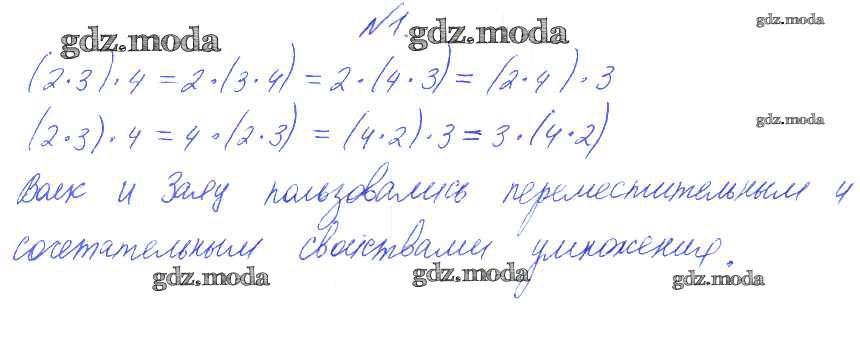 №1.
gdz.moda gdz.moda gdz.moda
(2·3)·4 = 2·(3·4) = 2·(4·3) = (2·4)·3
(2·3)·4 = 4·(2·3) = (4·2)·3 = 3·(4·2)
gdz.moda
Волк и Заяц пользовались переместительным и
сочетательным свойствами умножения.
gdz.moda gdz.moda gdz.moda